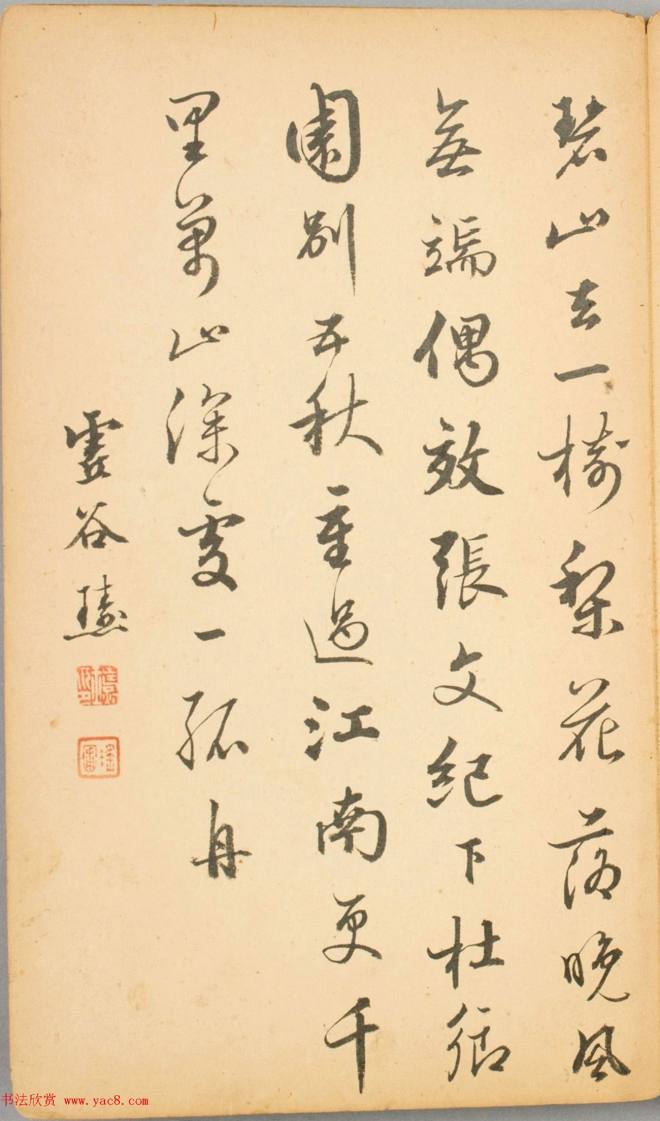 碧山去一樹梨花落晚風
無端偶效張文紀下杜鄉
園別五秋重過江南更千
里萬山深處一孤舟
谷
书法欣赏 www.yac8.com